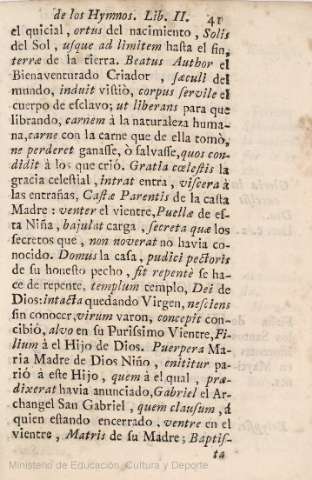 de los Hymnos. Lib. II. 41
el quicial, ortus del nacimiento, Solis
del Sol, usque ad limitem hasta el fin,
terræ de la tierra. Beatus Author el
Bienaventurado Criador, sæculi del
mundo, induit vistiò, corpus servile el
cuerpo de esclavo; ut liberans para que
librando, carnem à la naturaleza huma-
na, carne con la carne que de ella tomò,
ne perderet ganasse, ò salvasse, quos con-
didit à los que criò. Gratia cœlestis la
gracia celestial, intrat entra, viscera à
las entrañas, Castæ Parentis de la casta
Madre: venter el vientre, Puellæ de es-
ta Niña, bajulat carga, secreta quæ los
secretos que, non noverat no havia co-
nocido. Domus la casa, pudici pectoris
de su honesto pecho, fit repentè se ha-
ce de repente, templum templo, Dei de
Dios: intacta quedando Virgen, nesciens
sin conocer, virum varon, concepit con-
cibiò, alvo en su Purissimo Vientre, Fi-
lium à el Hijo de Dios. Puerpera Ma-
ria Madre de Dios Niño, enititur pa-
riò à este Hijo, quem à el qual, præ-
dixerat havia anunciado, Gabriel el Ar-
changel San Gabriel, quem clausum, à
quien estando encerrado, ventre en el
vientre, Matris de su Madre; Baptis-
ta
Ministerio de Educación, Cultura y Deporte